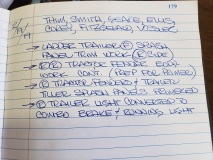 179
THIM, SMITH, GRACE, ELLIS
COREY, FITZGERALD, VOSLER
→ LADDER TRAILER Ⓡ SPLASH
PANEL TRIM WORK Ⓡ SIDE
→ TRACTOR FENDER BODY
WORK CONT. (PREP FOR PRIMER)
→ TRACTOR FENDERS & TRAILER
TILLER SPLASH PANELS PRIMERED
→ TRAILER LIGHT CONVERTED TO
COMBO BRAKE & RUNNING LIGHT